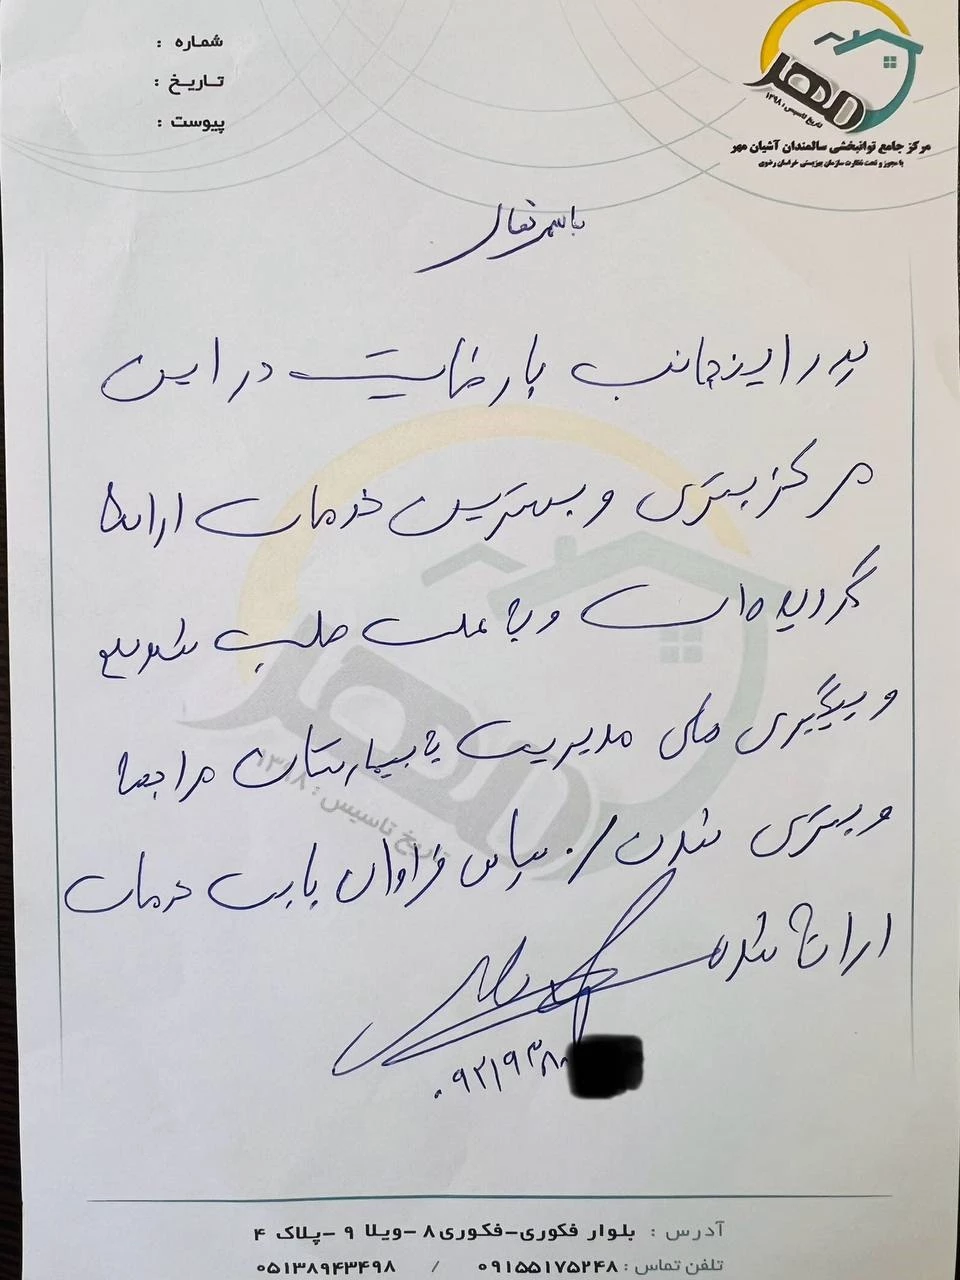 شماره :
تاریخ :
پیوست :
مهر
تاریخ تاسیس : ۱۳۹۸
مرکز جامع توانبخشی سالمندان آشیان مهر
با مجوز و تحت نظارت سازمان بهزیستی خراسان رضوی
باسمه تعالی
پدر اینجانب با رضایت در این
مرکز بستری و بهترین خدمات ارائه
گردیده است و به علت
و پیگیری های مدیریت به بیمارستان مراجعه
و بستری شدن / . سپاس فراوان بابت خدمات
ارائه شده
۰۹۲۱۹۳۸۰
مهر
تاریخ تاسیس : ۱۳۹۸
آدرس : بلوار فکوری-فکوری ۸ -ویلا ۹ -پلاک ۴
تلفن تماس : ۰۹۱۵۵۱۷۵۲۴۸ / ۰۵۱۳۸۹۴۳۴۹۸